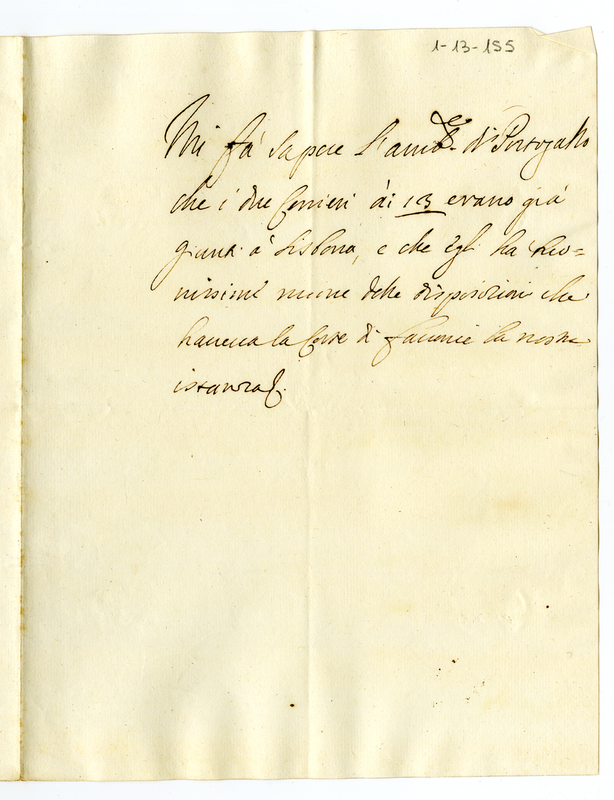 1-13-155
Mi fà sapere l'amb.re di Portogallo
che i due Corrieri di 13 erano già
giunti à Lisbona, e che Egli ha buo=
nissime nuove delle disposizioni che
haueua la Corte di fauorir la nostra
istanza